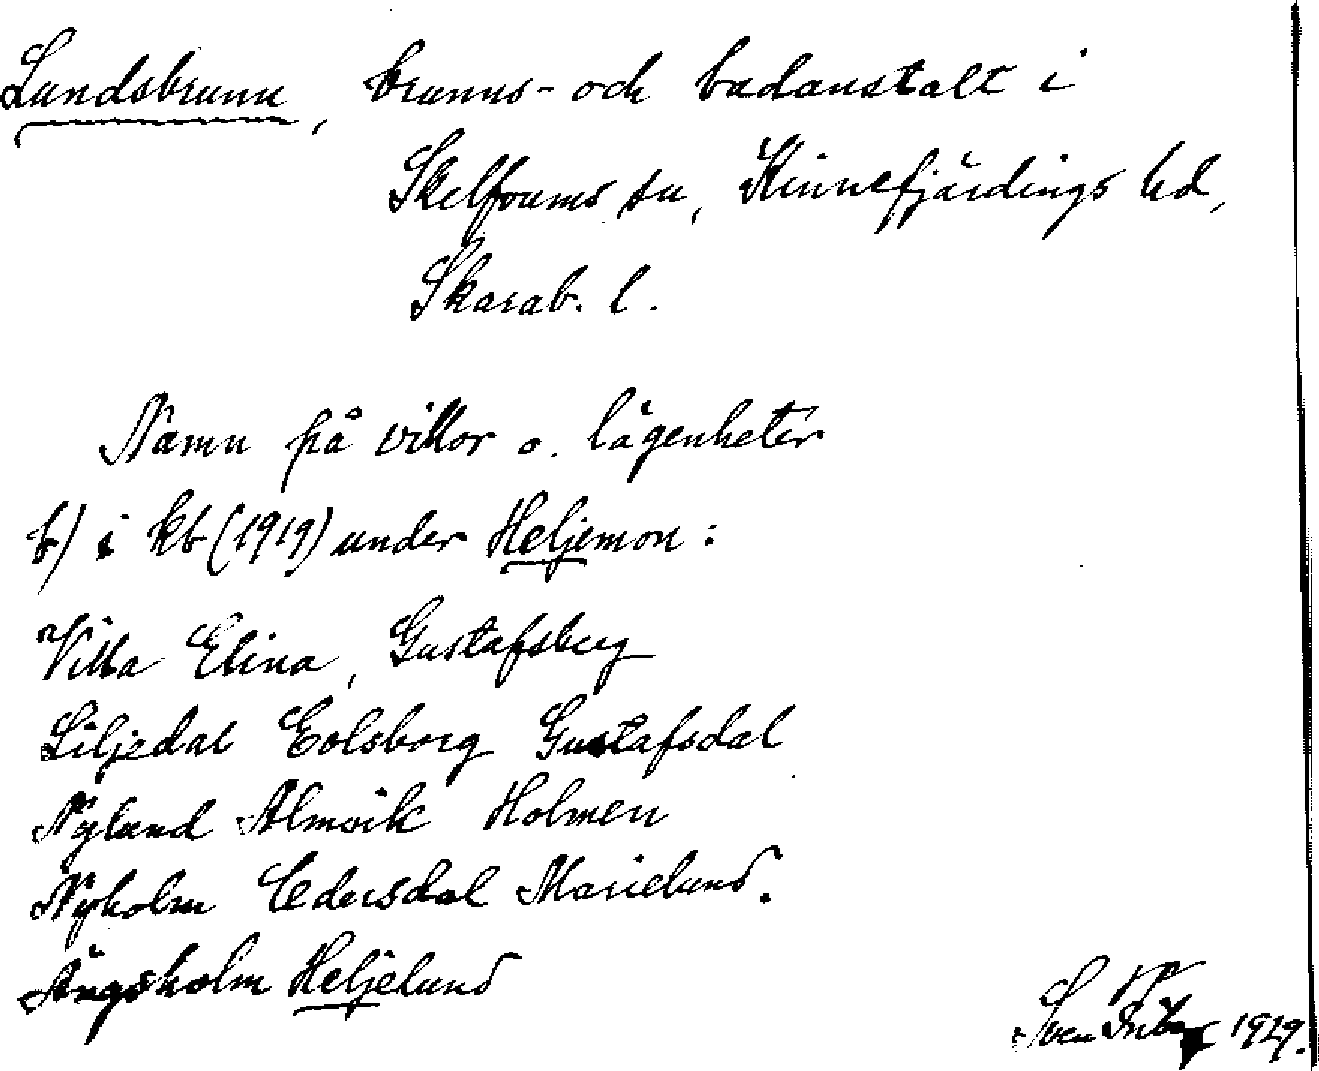 Lundsbrunn, brunns- och badanstalt i
Skelfvums sn, Kinnefjärdings hd,
Skarab. l.
Namn på villor o. lägenheter
b) i kb (1919) under Heljemon:
Villa Elina, Gustafsberg
Liljedal Eolsborg Gustafsdal
Nylund Almvik Holmen
Nyholm Cedersdal Marielund.
Ängsholm Heljelund
Sven 1929.